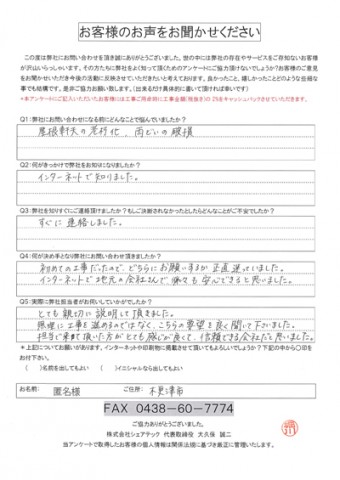 お客様のお声をお聞かせください
この度は弊社にお問い合わせを頂き誠にありがとうございました。世の中には弊社の存在やサービスをご存知ないお客様
が沢山いらっしゃいます。その方たちに弊社をよく知って頂くためのアンケートにご協力頂けないでしょうか?お客様のご意見
をお聞かせいただき今後の活動に反映させていただきたいと考えております。良かったこと、嬉しかったことどのような些細な
事でも結構です。是非ご協力お願い致します。(出来るだけ具体的に書いて頂ければ幸いです)
Q1:弊社にお問い合わせになる前にどんなことで悩んでいましたか?
屋根軒天の老朽化、雨どいの破損
Q2:何がきっかけで弊社をお知りになりましたか?
インターネットで知りました。
Q3:弊社を知りすぐにご連絡頂けましたか?もしご決断されなかったとしたらどんなことがご不安でしたか?
すぐに連絡しました。
Q4:何が決め手となり弊社にお問い合わせ頂きましたか?
初めての工事だったので、どちらにお願いするか正直迷っていました。
インターネットで地元の会社さんで、安心できると思いました。
Q5:実際に弊社担当者がお伺いしていかがでしたか?
とても親切に説明して頂きました。
無理に工事を進めるのではなく、こちらの要望を良く聞いて下さいました。
担当で来て頂いた方がとても感じが良くて、信頼できる会社だと思いました。
*上記についてお願いがあります。インターネットや印刷物に掲載させて頂いてもよろしいでしょうか?下記の中から○印を
お付け下さい。
( )名前を出してもよい ( )イニシャルなら出してもよい
お名前: 匿名様 ご住所: 木更津市
FAX 0438-60-7774
ご協力ありがとうございました。
株式会社シェアテック 代表取締役 大久保 誠二
当アンケートで取得したお客様の個人情報は関係法規に基づき厳正に管理いたします。